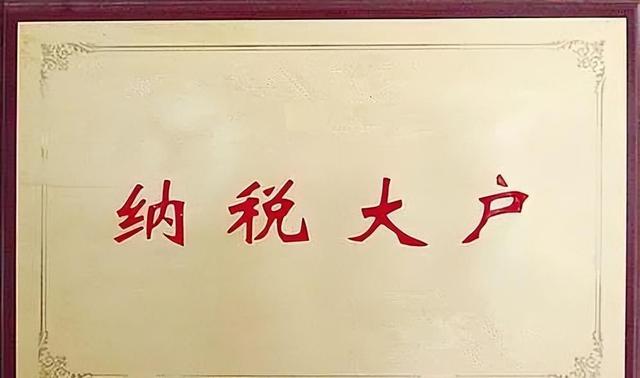 纳税大户